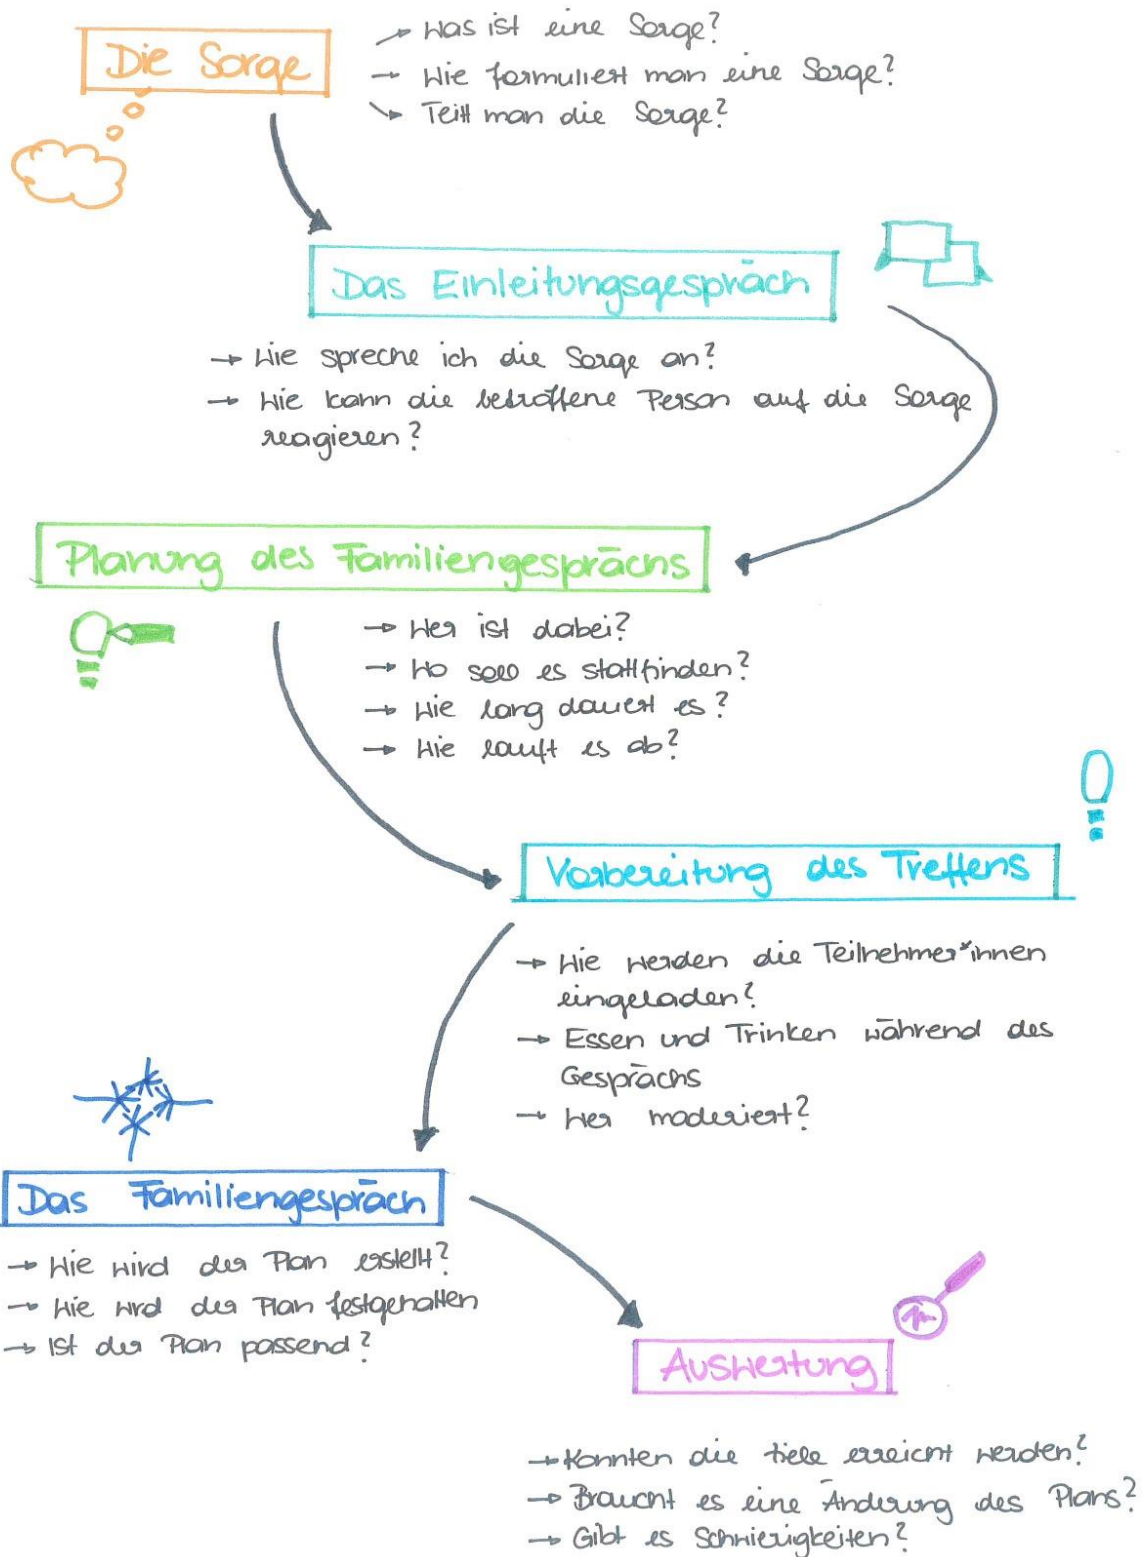 Die Sorge
→ Was ist eine Sorge?
→ Wie formuliert man eine Sorge?
→ Teilt man die Sorge?
Das Einleitungsgespräch
→ Wie spreche ich die Sorge an?
→ Wie kann die betroffene Person auf die Sorge
reagieren?
Planung des Familiengesprächs
→ Wer ist dabei?
→ Wo soll es stattfinden?
→ Wie lang dauert es?
→ Wie läuft es ab?
Vorbereitung des Treffens
→ Wie werden die Teilnehmer*innen
eingeladen?
→ Essen und Trinken während des
Gesprächs
→ Wer moderiert?
Das Familiengespräch
→ Wie wird der Plan erstellt?
→ Wie wird der Plan festgehalten
→ Ist der Plan passend?
Auswertung
→ Konnten die Ziele erreicht werden?
→ Braucht es eine Änderung des Plans?
→ Gibt es Schwierigkeiten?